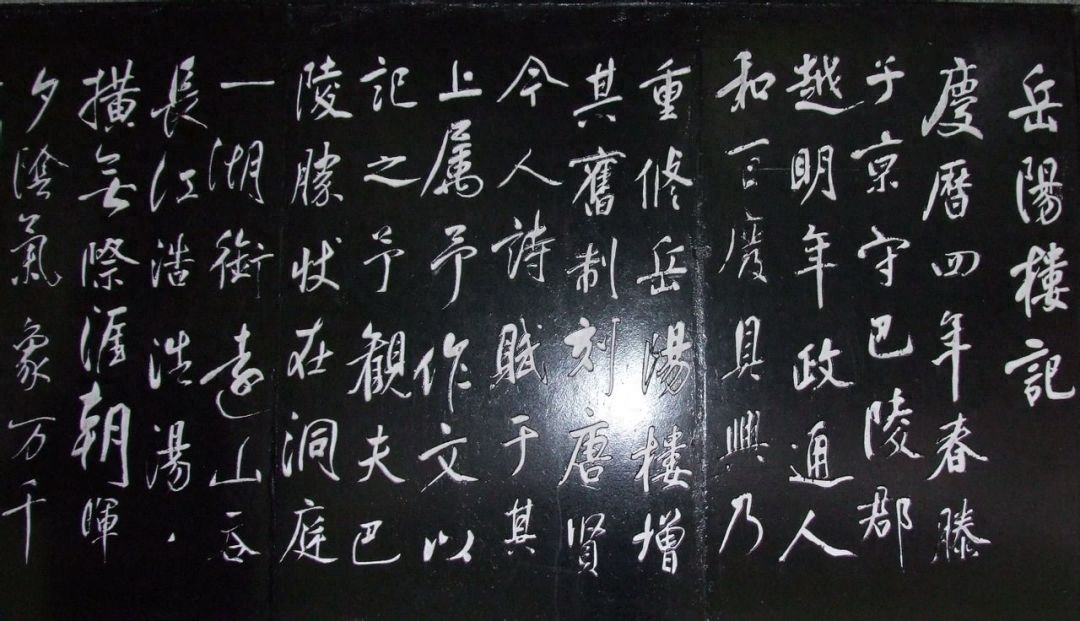 岳陽樓記
慶曆四年春滕
子京守巴陵郡
越明年政通人
和百廢具興乃
重修岳陽樓增
其舊制刻唐賢
今人詩賦于其
上属予作文以
記之予觀夫巴
陵勝狀在洞庭
一湖銜遠山吞
長江浩浩湯、
橫無際涯朝暉
夕陰氣象万千